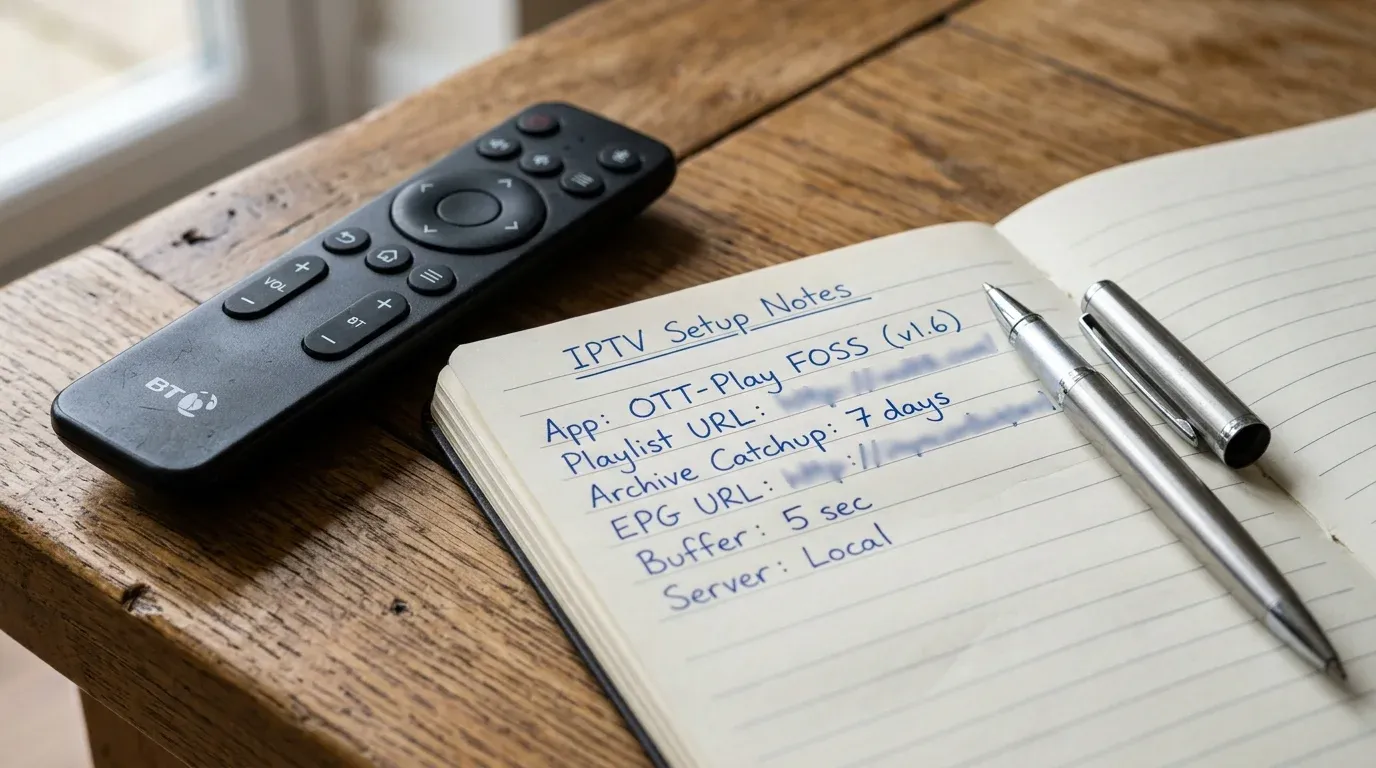 VOL
BT
BT
IPTV Setup Notes
App: OTT-Play FOSS (v1.6)
Playlist URL:
Archive Catchup: 7 days
EPG URL:
Buffer: 5 sec
Server: Local